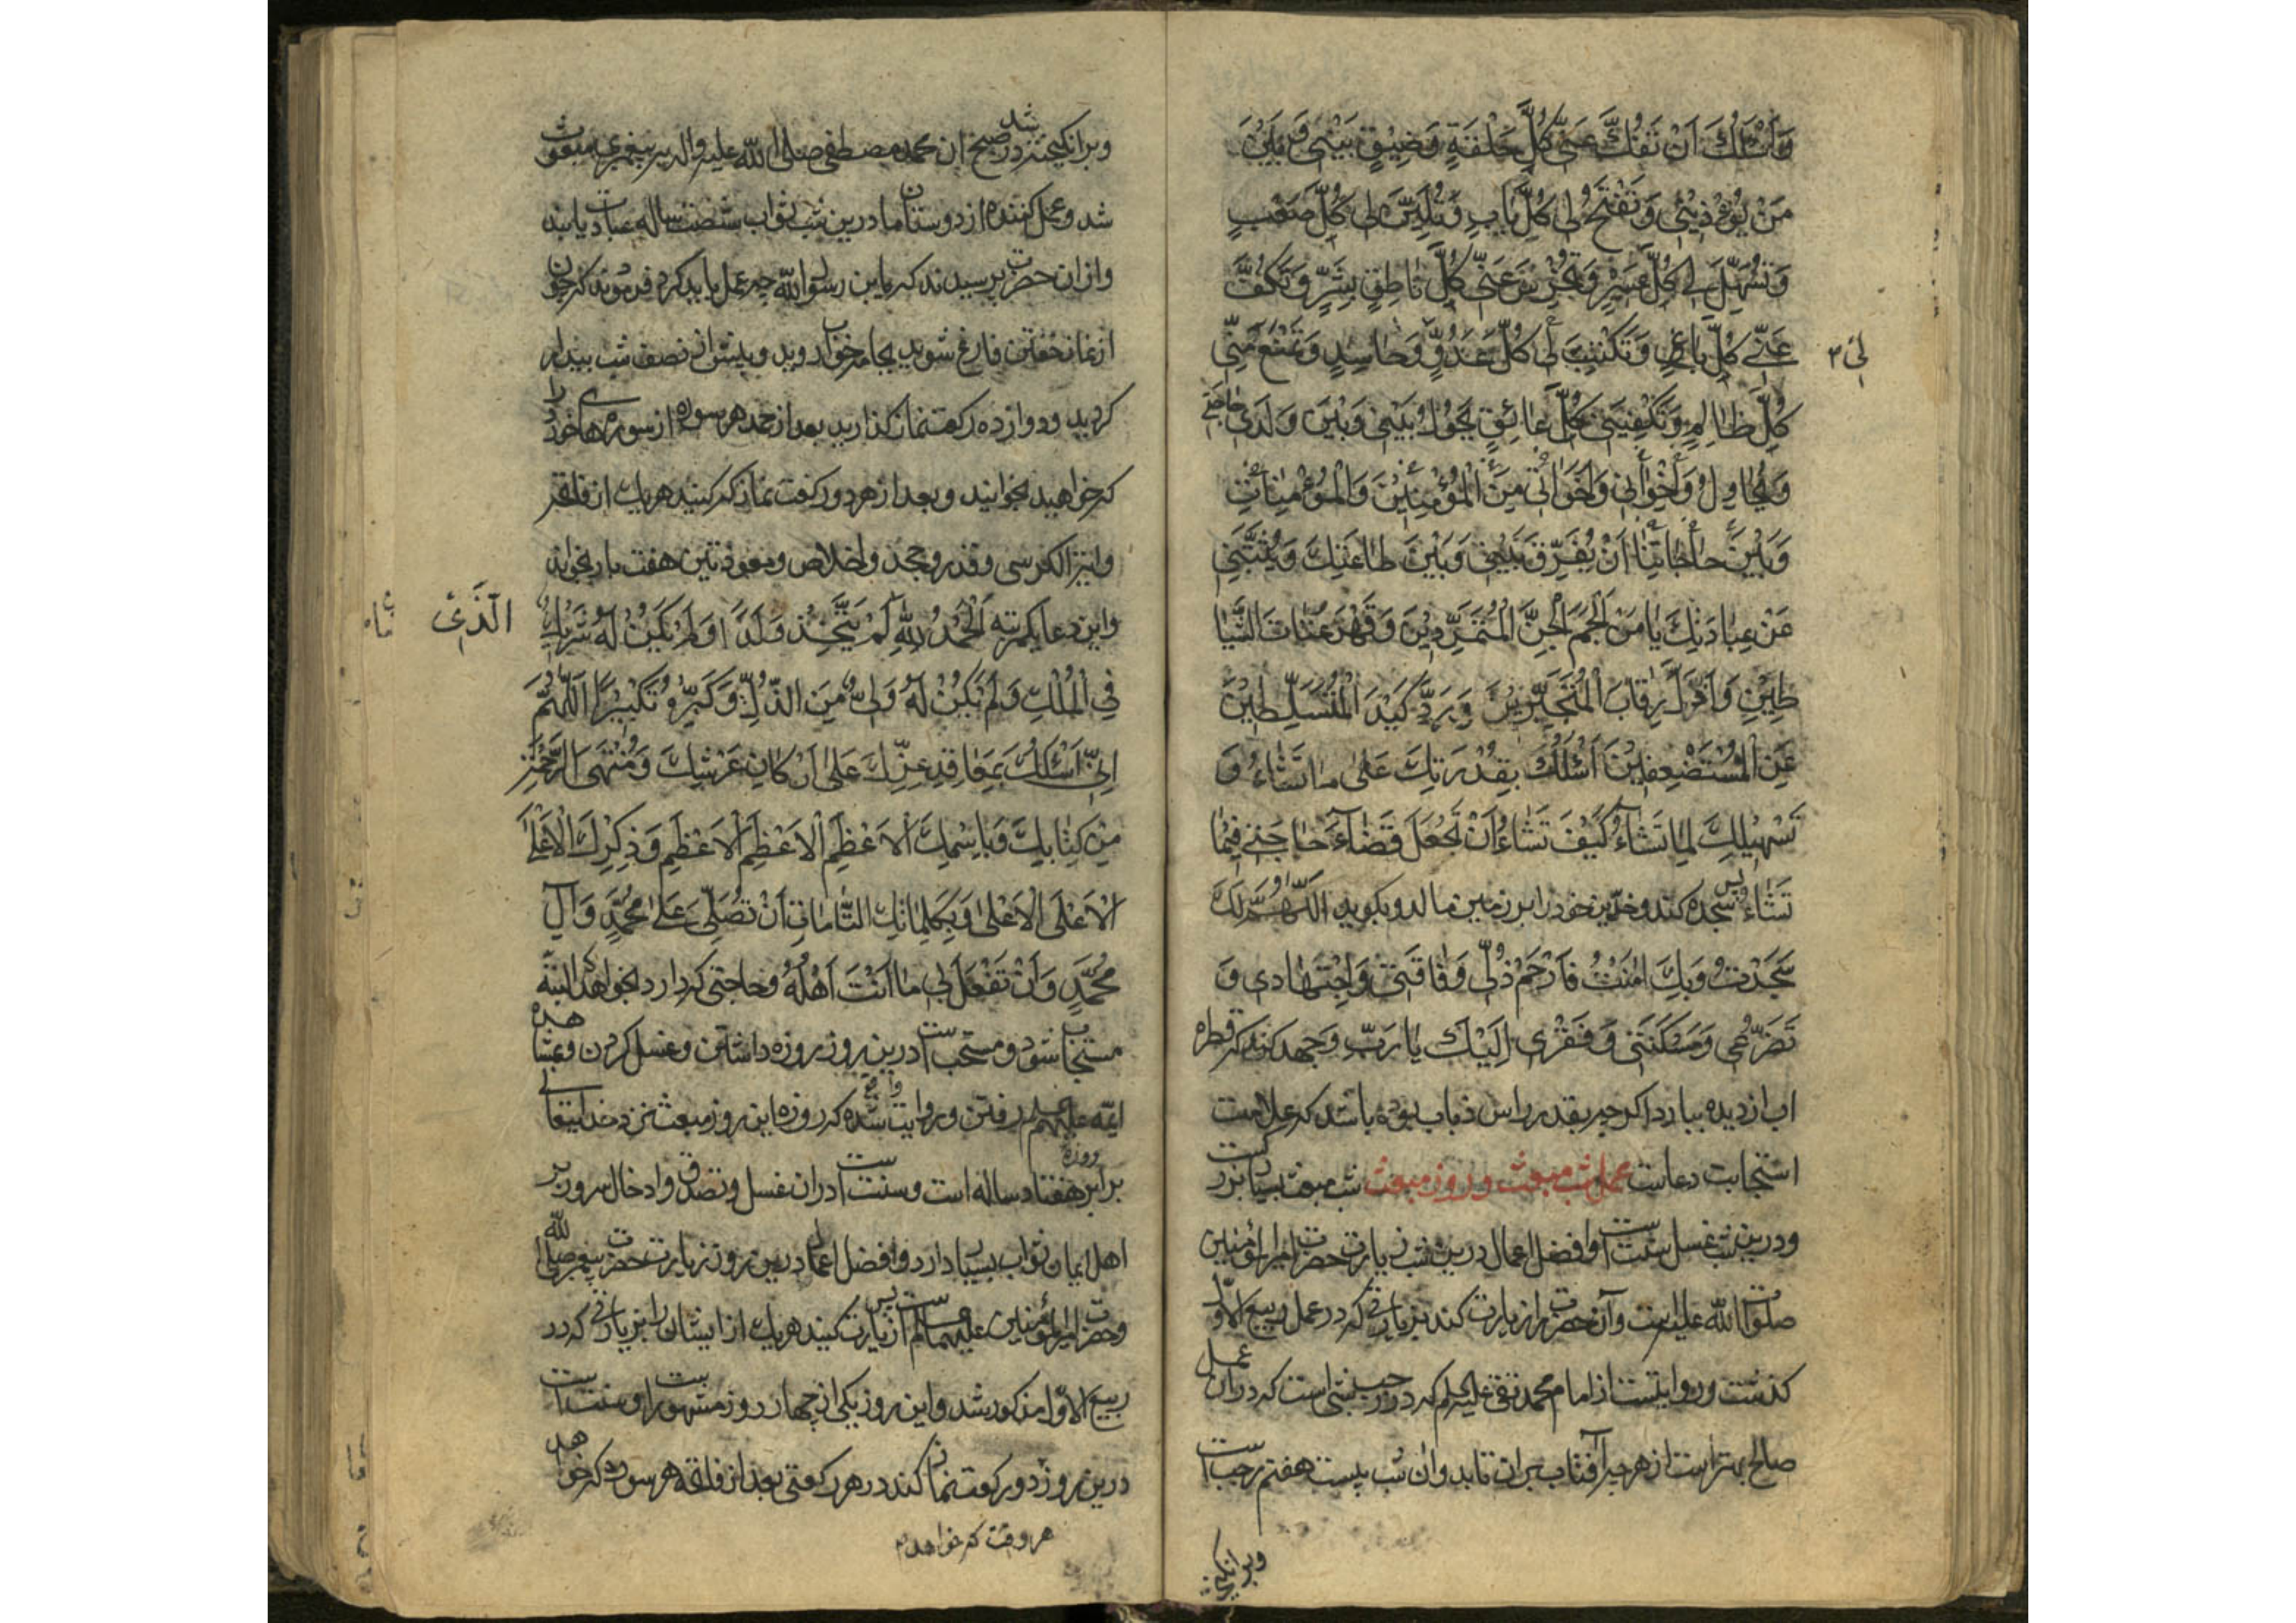 وَأَسْئَلُكَ اَنْ تَفُكَّ عَنّی كُلَّ حَلْقَةٍ وَضِیْقٍ بَیْنی وَ بَیْنَ
مَنْ یُؤْذِیْنی وَ تَفْتَحَ لی كُلَّ بَابٍ وَ تُلَیِّنَ لی كُلَّ صَعْبٍ
وَ تُسَهِّلَ لی كُلَّ عَسیْرٍ وَ تُخْرِسَ عَنّی كُلَّ نَاطِقٍ بِشَرٍّ وَ تَكُفَّ
عَنّی كُلَّ بَاغٍ وَ تَكْبِتَ لی كُلَّ عَدُوٍّ وَ حَاسِدٍ وَ تَمْنَعَ مِنّی
لی ۲
كُلَّ ظَالِمٍ وَ تَكْفِیَنی كُلَّ عَائِقٍ یَحُولُ بَیْنی وَ بَیْنَ وَلَدی حَاجَتی
وَ یُحَاوِلُ وَ اِخْوَانی وَ اَخَوَاتی مِنَ الْمُؤْمِنِیْنَ وَ الْمُؤْمِنَاتِ
وَ بَیْنَ حَاجَاتِنَا اَنْ یُفَرِّقَ بَیْنی وَ بَیْنَ طَاعَتِكَ وَ یُثَبِّطَنی
عَنْ عِبَادَتِكَ یَا مَنْ اَلْجَمَ الْجِنَّ الْمُتَمَرِّدِیْنَ وَ قَهَرَ عُتَاتَ الشَّیَا
طِیْنِ وَ اَذَلَّ رِقَابَ الْمُتَجَبِّرِیْنَ وَ رَدَّ كَیْدَ الْمُتَسَلِّطِیْنَ
عَنِ الْمُسْتَضْعِفِیْنَ اَسْئَلُكَ بِقُدْرَتِكَ عَلی مَا تَشَاءُ وَ
تَسْهِیْلِكَ لِمَا تَشَاءُ كَیْفَ تَشَاءُ اَنْ تَجْعَلَ قَضَاءَ حَاجَتی فِیْمَا
تَشَاءُ پس سجده كند و خدّین خود را بر زمین مالد و بگوید اَللّهُمَّ لَكَ
سَجَدْتُ وَ بِكَ اٰمَنْتُ فَارْحَمْ ذُلّی وَ فَاقَتی وَ اجْتِهَادی وَ
تَضَرُّعی وَ مَسْكَنَتی وَ فَقْری اِلَیْكَ یَا رَبِّ و جهد كند كه قطره
اب از دیده ببارد اكر چه بقدر راس ذباب بوده باشد كه علامت
استجابت دعاست عمل شب مبعث و روز مبعث شب مبعث بسیار بزرگ است
و درین شب غسل سنّت است و افضل اعمال درین شب زیارت حضرت امیر المؤمنین
صلوات الله علیه است و آن حضرت را زیارت كند بزیارتی كه در عمل ربیع الاوّل
كذشت و روایتست از امام محمد تقی علیه السلم كه در رجب شبی است كه در ان عمل
صالح بهتر است از هر چه آفتاب بران تابد و ان شب بیست هفتم رجب است
و برانكیخته
و برانكیخته شد در صبح ان محمد مصطفی صلی الله علیه و اله به پیغمبری مبعوث
شد و عمل كننده از دوستان ما درین شب ثواب شصت ساله عبادت یابد
و از ان حضرت پرسیدند كه یابن رسول الله چه عمل باید كرد فرمودند كه چون
از نماز خفتن فارغ شوید بجامه خواب روید و پیش از نصف شب بیدار
كردید و دوازده ركعت نماز كذارید بعد از حمد هر سوره از سورهای خورد را
كه خواهید بخوانید و بعد از هر دو ركعت نماز كه كنید هر یك از فاتحه
و ایة الكرسی و قدر و جحد و اخلاص و معوذتین هفت بار بخواند
و این دعا یكمرتبه اَلْحَمْدُ لِلّهِ لَمْ یَتَّخِذْ وَلَدًا وَ لَمْ یَكُنْ لَهُ شَرِیْكٌ
الَّذی
فِی الْمُلْكِ وَ لَمْ یَكُنْ لَهُ وَلِیٌّ مِنَ الذُّلِّ وَ كَبِّرْهُ تَكْبِیْرًا اَللّهُمَّ
اِنّی اَسْئَلُكَ بِمَعَاقِدِ عِزِّكَ عَلی اَرْكَانِ عَرْشِكَ وَ مُنْتَهَی الرَّحْمَةِ
مِنْ كِتَابِكَ وَ بِاسْمِكَ الْاَعْظَمِ الْاَعْظَمِ الْاَعْظَمِ وَ ذِكْرِكَ الْاَعْلَی
الْاَعْلَی الْاَعْلَی وَ بِكَلِمَاتِكَ التَّامَاتِ اَنْ تُصَلِّیَ عَلی مُحَمَّدٍ وَ آلِ
مُحَمَّدٍ وَ اَنْ تَفْعَلَ بی مَا اَنْتَ اَهْلُهُ و حاجتی كه دارد بخواهد كه البته
مستجاب شود و مستحب است درین روز روزه داشتن و غسل كردن و بمشاهده
ایمه علیهم السلم رفتن و روایت واقع شده كه روزه این روز مبعث نزد خدایتعالی
برابر روزه هفتاد ساله است و سنت است دران غسل و تصدق و ادخال سرور بر
اهل ایمان ثواب بسیار دارد و افضل اعمال درین روز زیارت حضرت پیغمبر صلی الله
و حضرت امیر المؤمنین علیهما السلم است پس زیارت كنید هر یك از ایشان را بزیارتی كه در
ربیع الاوّل مذكور شد و این روز یكی از چهار روز مشهور است و سنت است
درین روز دو ركعت نماز كند در هر ركعتی بعد از فاتحه هر سوره كه خواهد
هر وقت كه خواهد